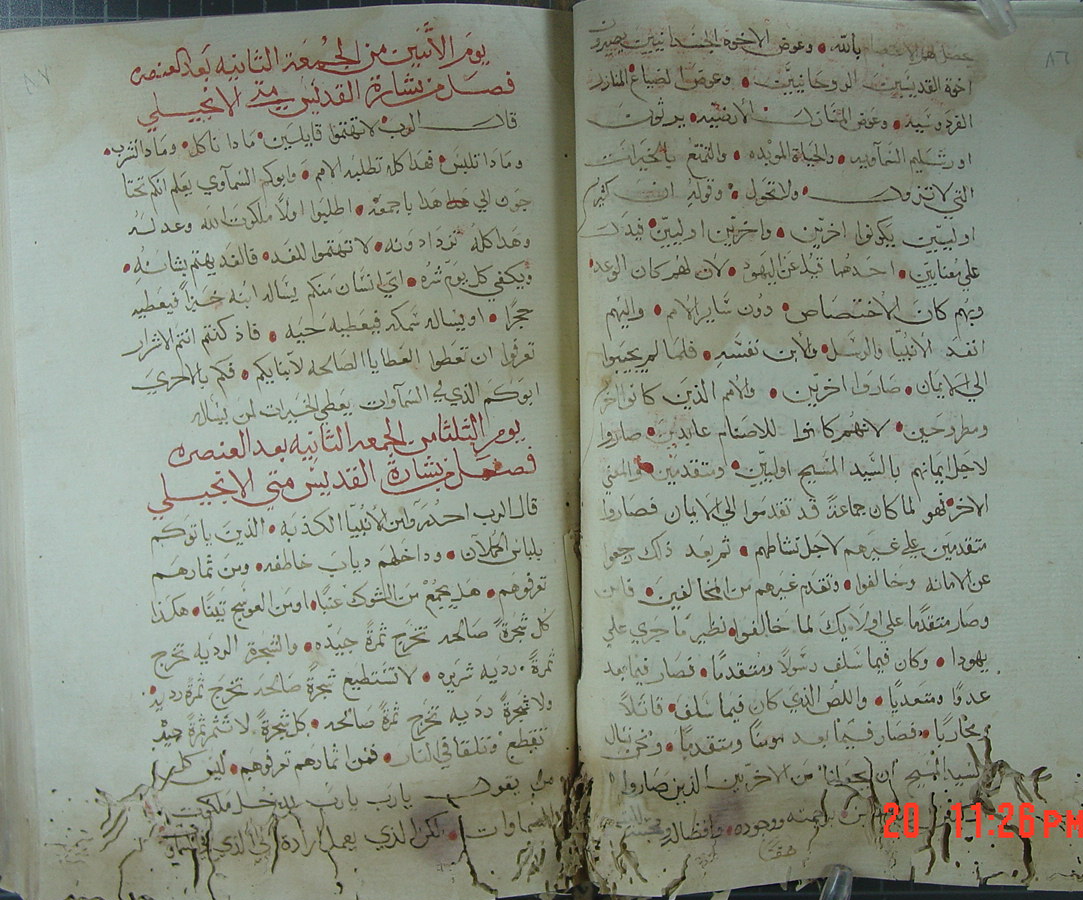 ٨٦
بالله • وعوض الاخوة الجسدانيين يصيرون
اخوة القديسين الروحانيين • وعوضا لضياع المنازل
الفردوسيه • وعوض المنازل الارضيه • يرثون
اورشليم السمآوييه • والحياة الموبده • والتمتع بالخيرات
التي لا تزول • ولا تحول • وقوله ان كثيرا
اوليين يكونوا اخرين • واخرين اوليين • فيدل
علي معنايين • احدهما قيل عن اليهود • لان لهم كان الوعد
وبهم كان الاختصاص • دون ساير الامم • واليهم
انفد الانبيا والرسل • والابن نفسه • فلما لم يجيبوا
الي الايمان • صاروا اخرين • والامم الذين كانوا اخر
ومطروحين • لانهم كانوا للاصنام عابدين • صاروا
لاجل ايمانهم بالسيد المسيح اوليين • ومتقدمين والمعني
الاخر فهو لما كان جماعة قد تقدموا الي الايمان فصاروا
متقدمين علي غيرهم لاجل نشاطهم • ثم بعد ذاك رجعوا
عن الامانه وخالفوا • وتقدم غيرهم من المخالفين •
وصار متقدما علي اولايك لما خالفوا نظير ما جري علي
يهودا • وكان فيما سلف رسولا ومتقدما • فصار فيما بعد
عدوا ومتعديا • واللص الذي كان فيما سلف • قاتلا
محاربا • فصار فيما بعد مومنا ومتقدما • ونحن نسال
السيد المسيح ان يجعلنا من الاخرين الذين صاروا
وجوده • وافضاله
٨٧
يوم الأثنين من الجمعة الثانيه بعد العنصره
فصل من بشارة القديس متي الانجيلي
قال الرب لا تهتموا قايلين • مادا ناكل • ومادا نشرب •
ومادا نلبس • فهدا كله تطلبه الامم • وابوكم السمآوي يعلم انكم تحتا
جون الي هدا باجمعه • اطلبوا اولا ملكوت الله وعدله
وهدا كله تزدادونه • لا تهتموا للغد • فالغد يهتم بشانه •
ويكفي كل يوم شره • اي انسان منكم يساله ابنه خبزا فيعطيه
حجرا • او يساله سمكه فيعطيه حيه • فاذ كنتم انتم الاشرار
تعرفوا ان تعطوا العطايا الصالحه لآبنايكم • فكم بالاحري
ابوكم الذي في السمآوات يعطي الخيرات لمن يساله
يوم الثلثا من الجمعه الثانيه بعد العنصره
فصل من بشارة القديس متي الانجيلي
قال الرب احدروا من الانبيا الكدبه • الذين ياتوكم
بلباس الحملان • وداخلهم دياب خاطفه • ومن ثمارهم
تعرفوهم • هل يجمع من الشوك عنبا • او من العوسج تينا • هكذا
كل شجرة صالحه تخرج ثمرة جيده • والشجرة الرديه تخرج
ثمرة رديه شريره • لا تستطيع شجرة صالحه تخرج ثمرة رديه
ولا شجرة رديه تخرج ثمرة صالحه • كل شجرة لا تثمر ثمرة جيده
تقطع وتلقا في النار • فمن اثمارهم تعرفوهم • ليس كل
من يقول يارب يارب يدخل ملكوت
السماوات • لكن الذي يعمل ارادة ابي الذي في
20 11:26 PM